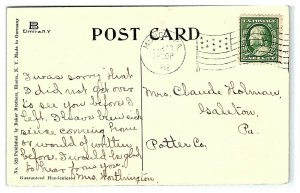 B
ELMIRA, N.Y.
POST CARD.
U.S. POSTAGE
No. 525 Published by Baker Brothers, Elmira, N. Y. Made in Germany
Guaranteed Handcolored
I was sorry that
I did not get over
to see you before I
left. I have been sick
since coming home
or would of written
before. Would be glad
to hear from you.
Mrs. Worthington
Mrs. Claude Holman
Galeton,
Pa.
Potter Co.